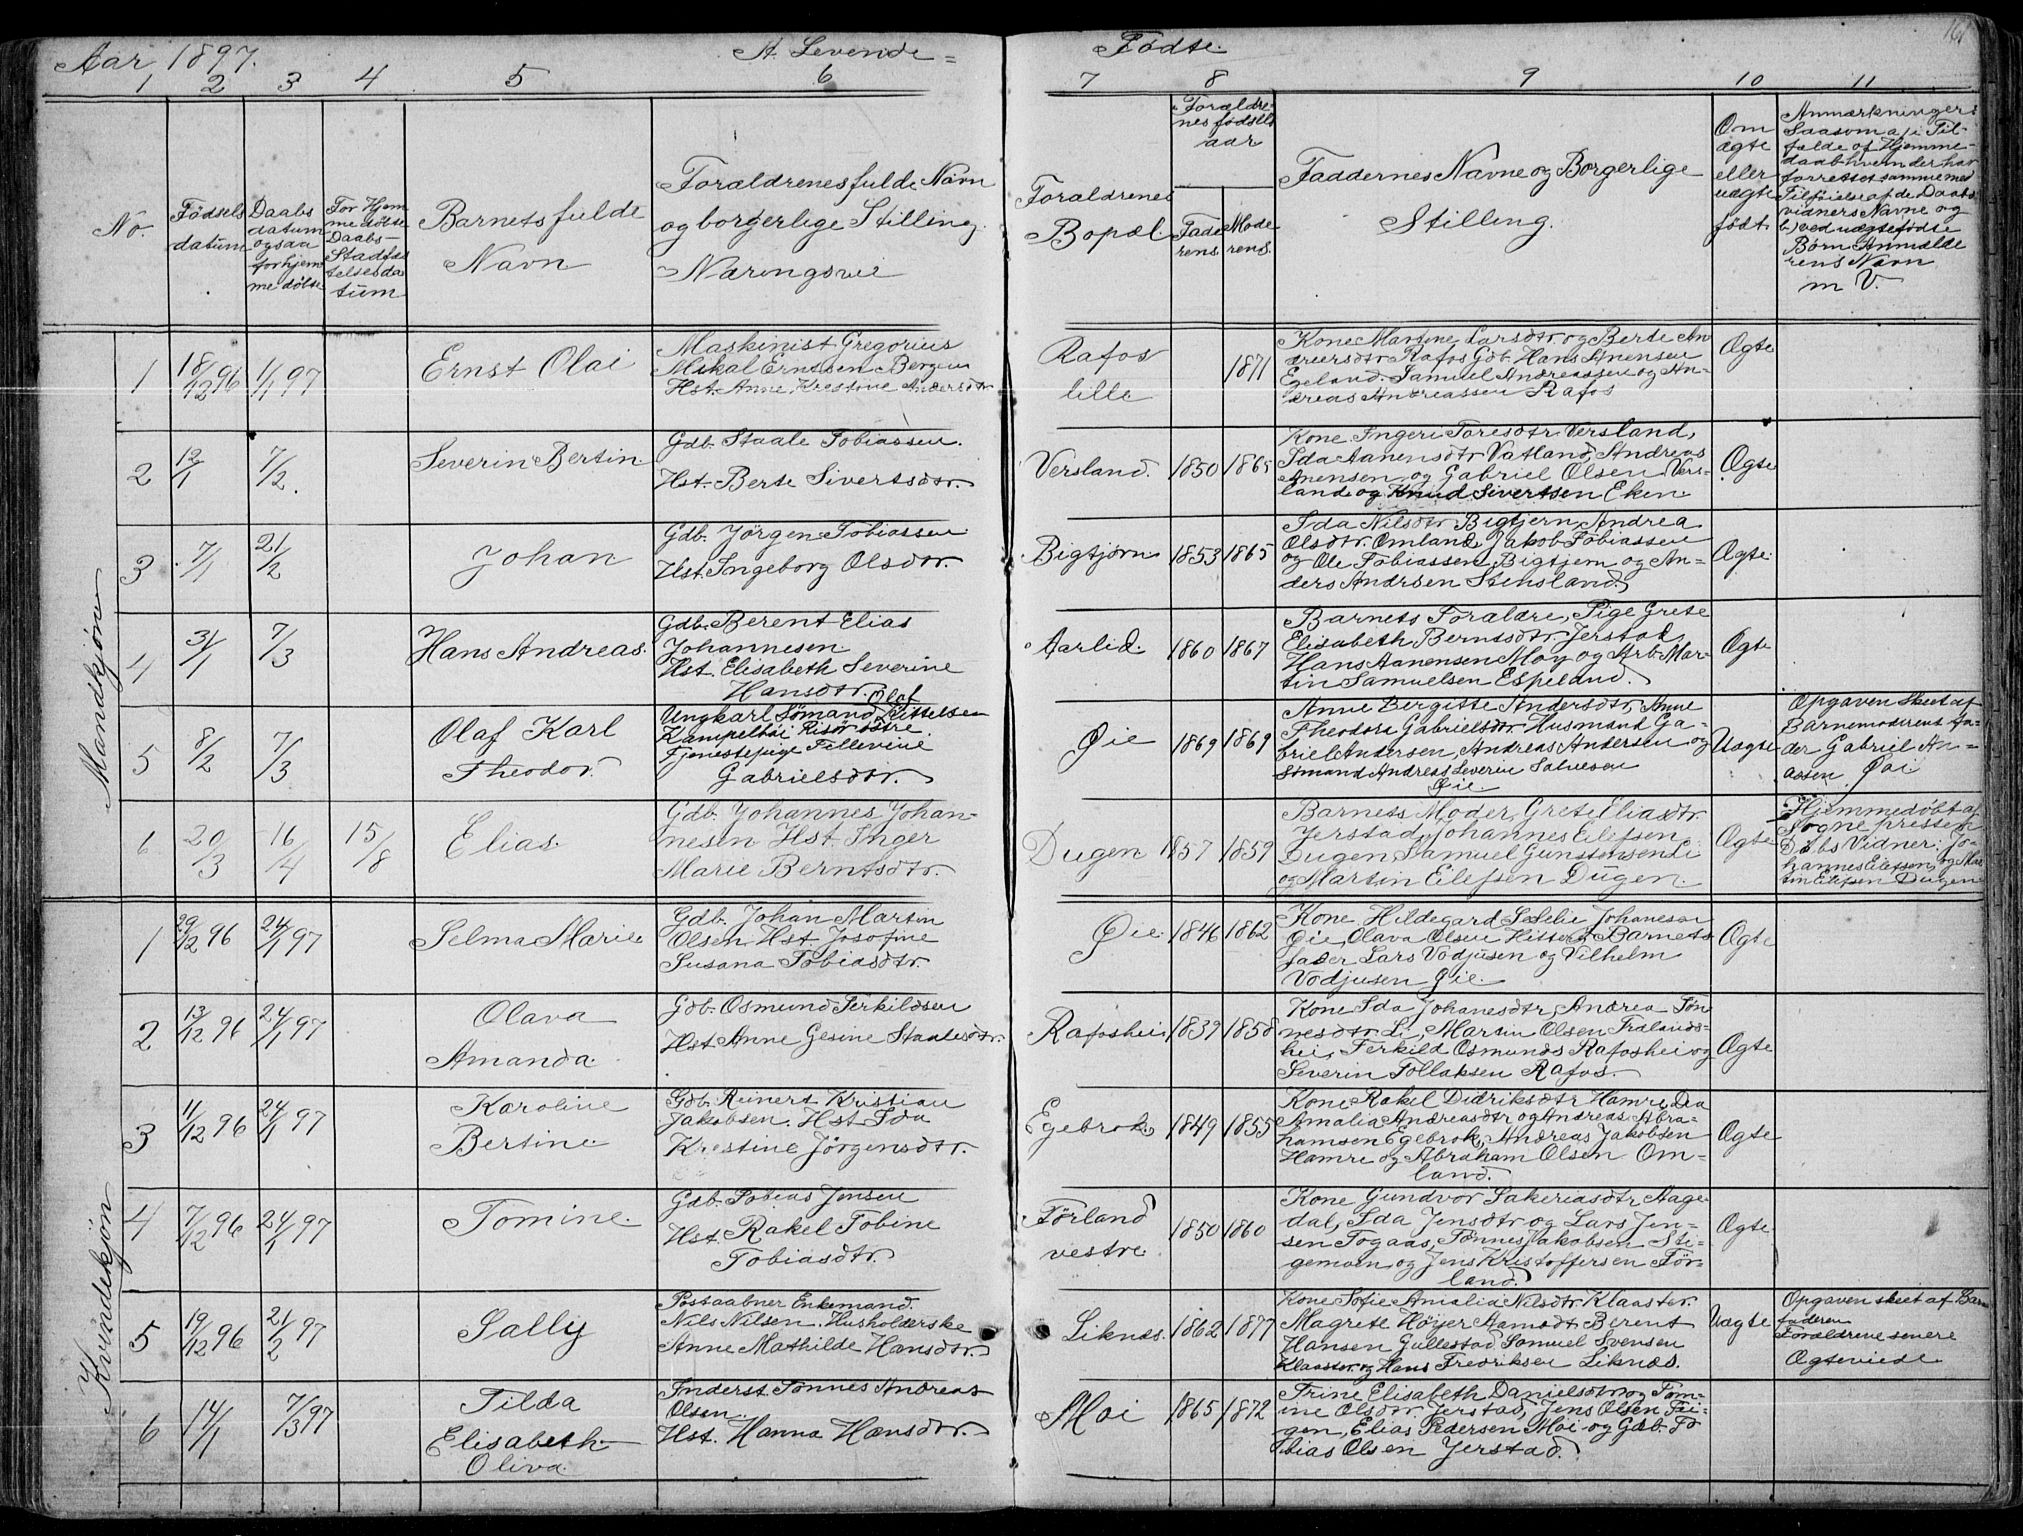 Aar 1897. A. Levende= Fødte. 161
1 2 3 4 5 6 7 8 9 10 11
No.
Fødsels
datum
Daabs
datum
ogsaa
for hjem
me døbte
For Hjem
me døbte
Daabs-
Stadfæs
telsesda
tum
Barnets fulde
Navn
Forældrenes fulde Navn
og borgerlige Stilling
Næringsvei
Forældrenes
Bopæl
Forældre-
nes fødsels
aar
Fade
rens
Mode
rens
Faddernes Navne og Borgerlige
Stilling.
Om
ægte
eller
uægte
født
Anmærkninger
Saasom a, i Til-
fælde af Hjemme-
daab hvem der har
forrettet samme med
Tilføielse af de Daabs
vidners Navne og
b) ved uægtefødte
Børn Anmelde
rens Navn
m V.
Mandkjøn
1 18/12 96 1/1 97 Ernst Olai
Maskinist Gregorius
Mikal Erntsen Bergen
Hst. Anne Krestine Andersdtr
Rafos
lille
1871
Kone Martine Larsdtr og Berte An
dreersdtr Rafos Gdb. Hans Anensen
Egeland. Samuel Andreassen og An-
dreas Andreassen Rafos
Ægte
2 12/1 7/2. Severin Bertin
Gdb. Staale Tobiassen.
Hst. Berte Sivertsdtr.
Versland. 1850 1865
Kone Ingeri Toresdtr Versland,
Ida Aanensdtr Vatland, Andreas
Anensen og Gabriel Olsen Vers-
land og Knud Sivertsen Eken
Ægte
3 7/1 21/2 Johan
Gdb. Jörgen Tobiassen
Hst. Ingeborg Olsdtr.
Bigtjørn 1853 1865
Ida Nilsdtr Bigtjern, Andrea
Olsdtr Omland, Jakob Tobiassen
og Ole Tobiassen Bigtjern og An-
ders Andrsen Stensland.
Ægte.
4 31/1 7/3 Hans Andreas.
Gdb. Berent Elias
Johannesen
Hst. Elisabeth Severine
Hansdtr.
Aarlid. 1860 1867
Barnets Forældre, Pige Grete
Elisabeth Berntsdtr Jerstad,
Hans Aanensen Moy og Arb. Mar-
tin Samuelsen Espeland.
Ægte
5 8/2 7/3 Olaf Karl
Theodor.
Olaf
Ungkarl Sømand Kittelsen
Kampelhöi Risör östre.
Tjenestepige Tillevine
Gabrielsdtr.
Øie 1869 1869
Anne Bergitte Andersdtr, Anne
Theodora Gabrielsdtr. Husmand Ga-
briel Andersen, Andreas Andersen og
Sømand Andreas Severin Salvesen
Øie.
Uægte
Opgaven Skeet af
Barnemoderens fa-
der Gabriel An-
assen Øei
6 20/3 16/4 15/8 Elias.
Gdb. Johannes Johan-
nesen Hst. Inger
Marie Berntsdtr.
Dugen 1857 1859
Barnets Moder, Grete Eliasdtr
Jerstad, Johannes Eilefsen
Dugen Samuel Gunstensen Li
og Martin Eilefsen Dugen.
Ægte
Hjemmedøbt af
Sognepresten
Dåbs Vidner: Jo-
hannes Eilefsen, og Mar
tin Eilefsen Dugen
Kvindekjøn
1 29/12 96 24/1 97 Selma Marie
Gdb. Johan Martin
Olsen Hst. Josofine
Susana Tobiasdtr.
Øie 1846 1862
Kone Hildegard Selie Johanesen
Øie, Olava Olsen Hitterø, Barnets
fader Lars Vodjusen og Vilhelm
Vodjusen Øie.
Ægte
2 13/12 96 24/1 97 Olava
Amanda.
Gdb. Osmund Terkildsen
Hst. Anne Gesine Staalesdtr.
Rafoshei 1839 1858
Kone Ida Johanesdtr, Andrea Tøn-
nesdtr Li, Martin Olsen Frølands-
hei, Terkild Osmunds Rafoshei og
Severin Tollaksen Rafos.
Ægte
3 11/12 96 24/1 97 Karoline
Bertine.
Gdb. Reinert Kristian
Jakobsen. Hst. Ida
Krestine Jörgensdtr.
Egebrok 1849 1855
Kone Rakel Didriksdtr Hamre, Dea
Amalia Andreasdtr og Andreas Abra-
hamsen Egebrok, Andreas Jakobsen
Hamre og Abraham Olsen Om-
land.
Ægte
4 7/12 96 24/1 97 Tomine.
Gdb. Tobias Jensen
Hst. Rakel Tobine
Tobiasdtr.
Förland
vestre. 1850 1860
Kone Gundvor Sakeriasdtr Aage-
dal, Ida Jensdtr og Lars Jen-
sen Togaas, Tønnes Jakobsen Sti-
gemoen og Jens Kristoffersen För-
land.
Ægte
5 19/12 96 21/2 97 Sally
Postaabner Enkemand.
Nils Nilsen. Husholderske
Anne Mathilde Hansdtr.
Liknæs. 1862 1877
Kone Sofie Amalia Nilsdtr Klaaster.
Magrete Höyer Aamodt Berent
Hansen Gullestad Samuel Svensen
Klaaster og Hans Fredriksen Liknæs.
Uægte
Opgaven skeet af Barne
faderen
Forældrene senere
Ægteviede
6 14/1 7/3 97 Tilda
Elisabeth
Oliva.
Inderst Tønnes Andreas
Olsen
Hst. Hanna Hansdtr.
Moi 1865 1872
Trine Elisabeth Danielsdtr og Tom-
ine Olsdtr Jerstad, Jens Olsen Fei-
gen, Elias Pedersen Moi og Gdb. To
bias Olsen Jerstad.